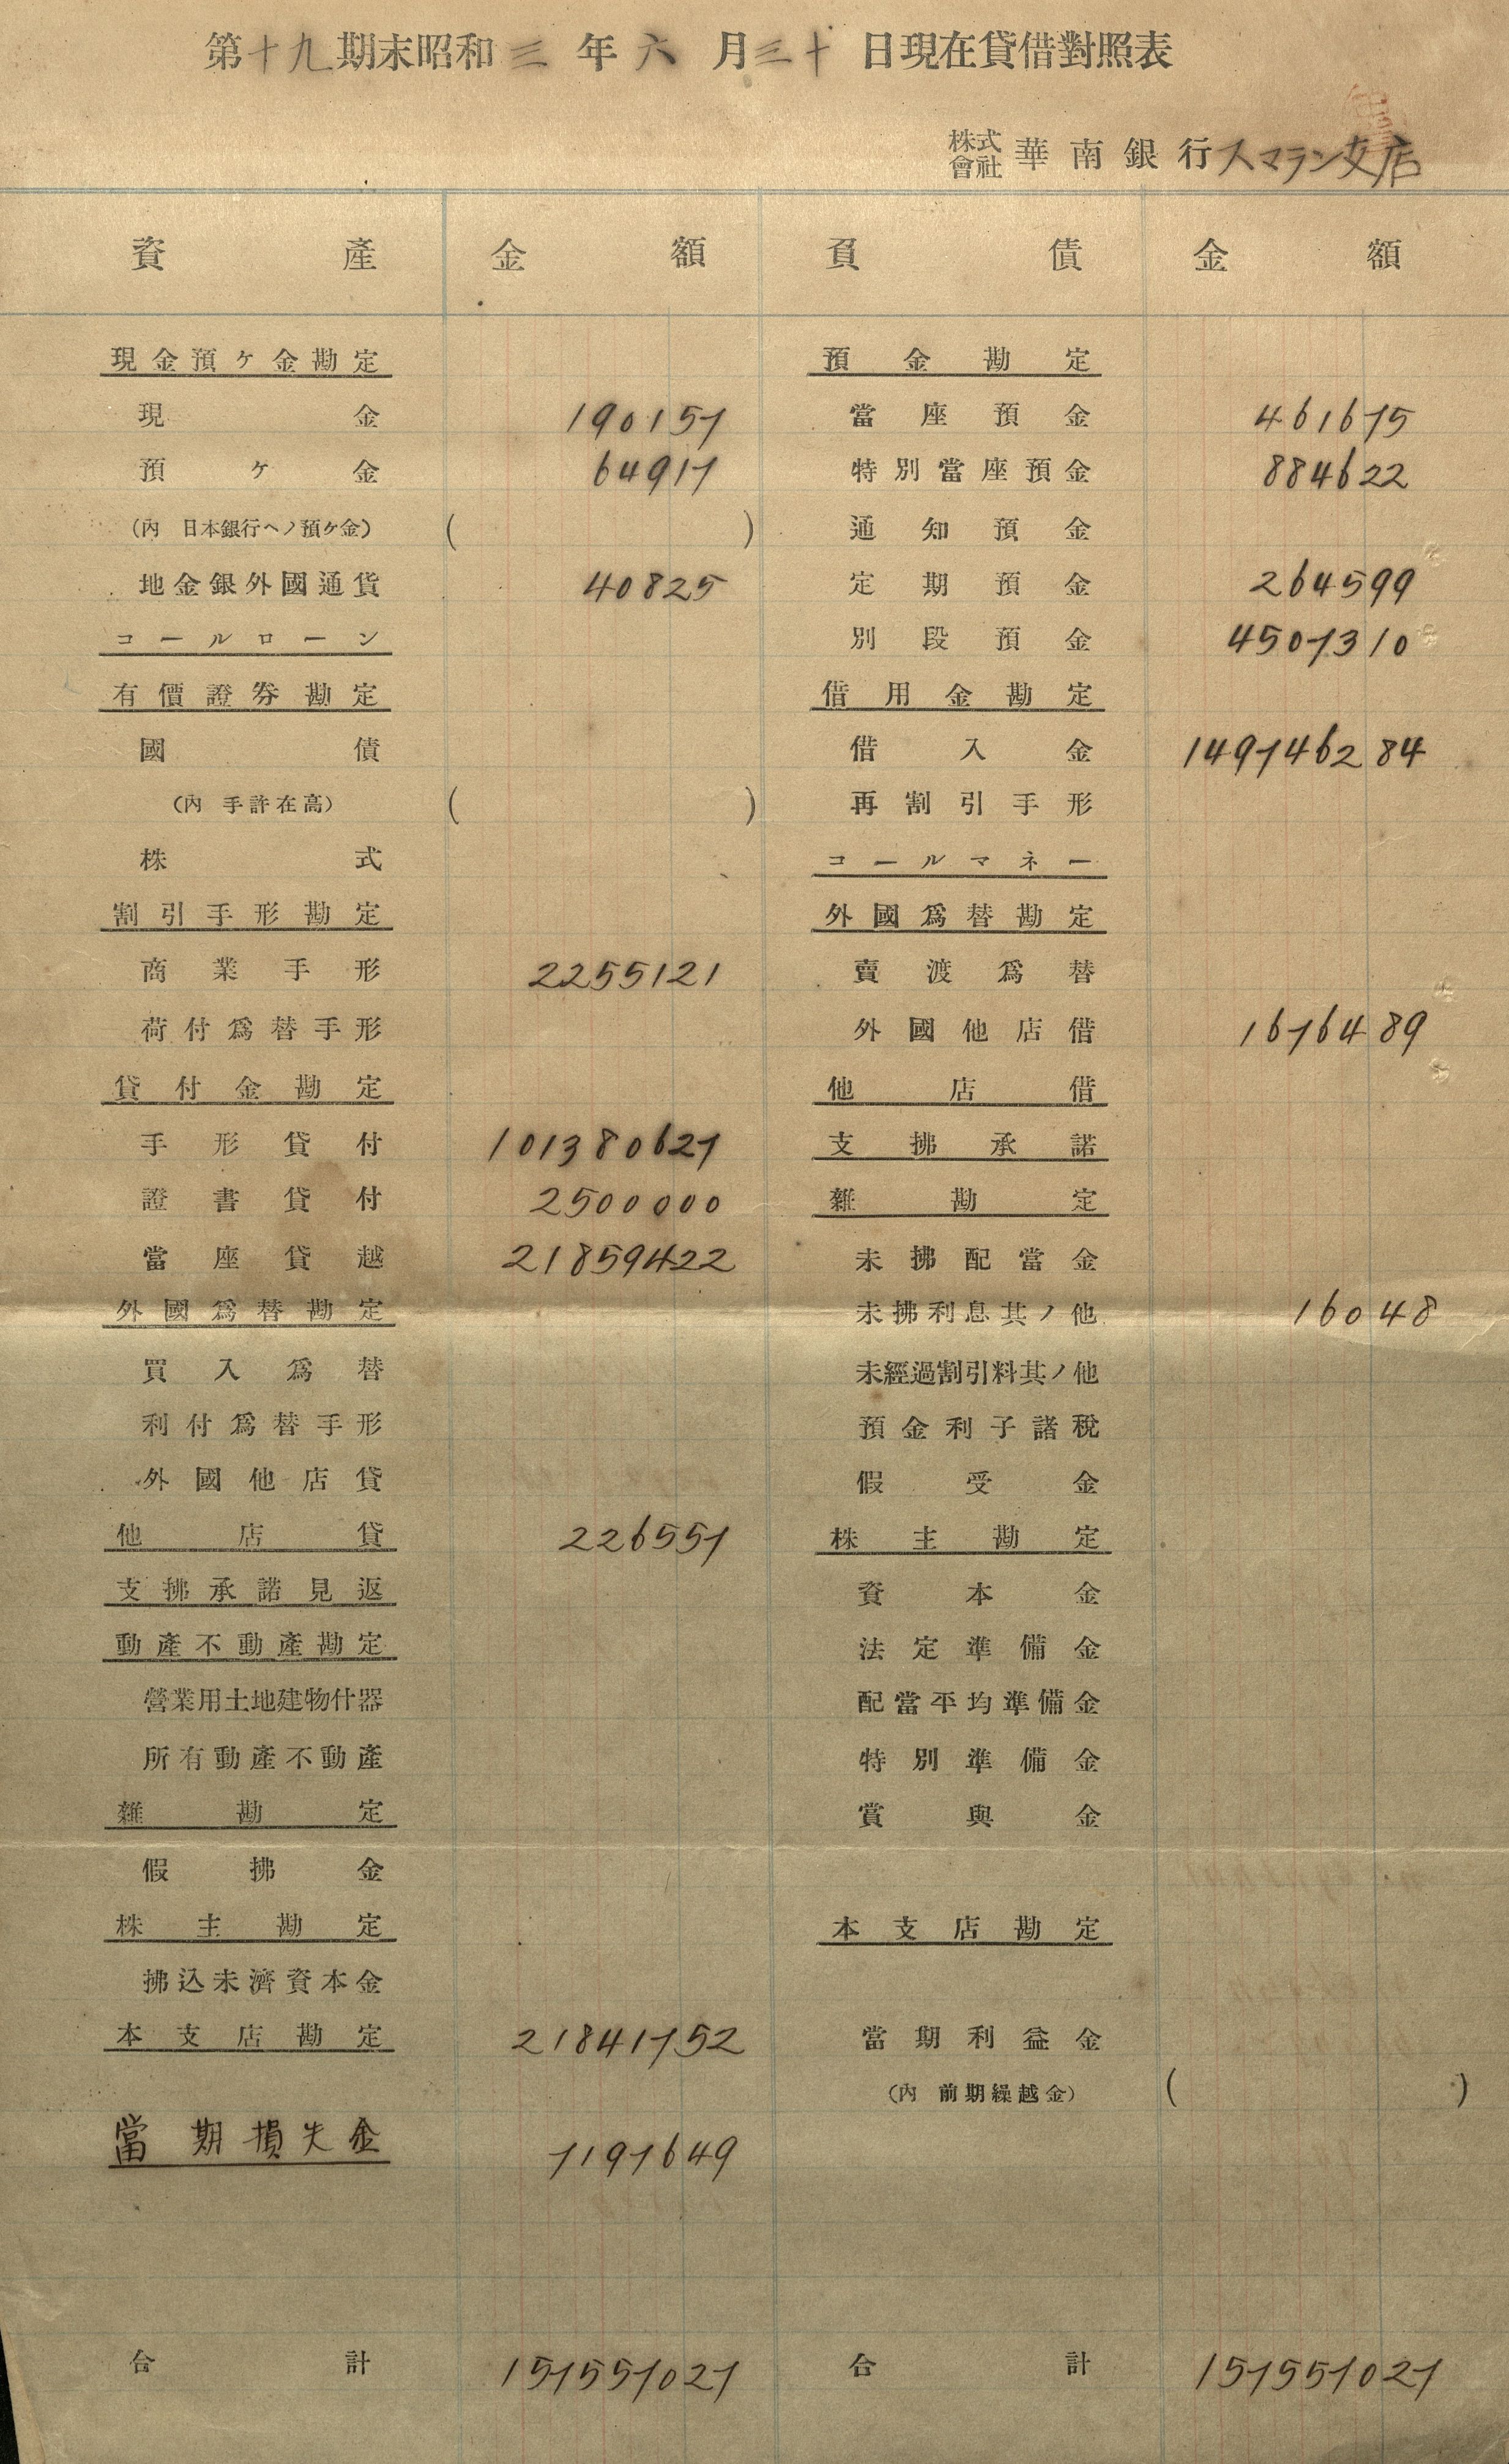 第十九期末昭和三年六月三十日現在貸借對照表
株式會社 華南銀行スマラン支店
資產 金額 負債 金額
現金預ケ金勘定 預金勘定
現金 190157 當座預金 461675
預ケ金 64917 特別當座預金 884622
(內 日本銀行ヘノ預ケ金) ( ) 通知預金
地金銀外國通貨 40825 定期預金 264599
コールローン 別段預金 4507310
有價證券勘定 借用金勘定
國債 借入金 149746284
(內 手許在高) ( ) 再割引手形
株式 コールマネー
割引手形勘定 外國爲替勘定
商業手形 2255121 賣渡爲替
荷付爲替手形 外國他店借 1676489
貸付金勘定 他店借
手形貸付 101380627 支拂承諾
證書貸付 2500000 雜勘定
當座貸越 21859422 未拂配當金
外國爲替勘定 未拂利息其ノ他 16048
買入爲替 未經過割引料其ノ他
利付爲替手形 預金利子諸稅
外國他店貸 假受金
他店貸 226557 株主勘定
支拂承諾見返 資本金
動產不動產勘定 法定準備金
營業用土地建物什器 配當平均準備金
所有動產不動產 特別準備金
雜勘定 賞與金
假拂金
株主勘定 本支店勘定
拂込未濟資本金
本支店勘定 21841752 當期利益金
(內 前期繰越金) ( )
當期損失金 7197649
合計 157557027 合計 157557027